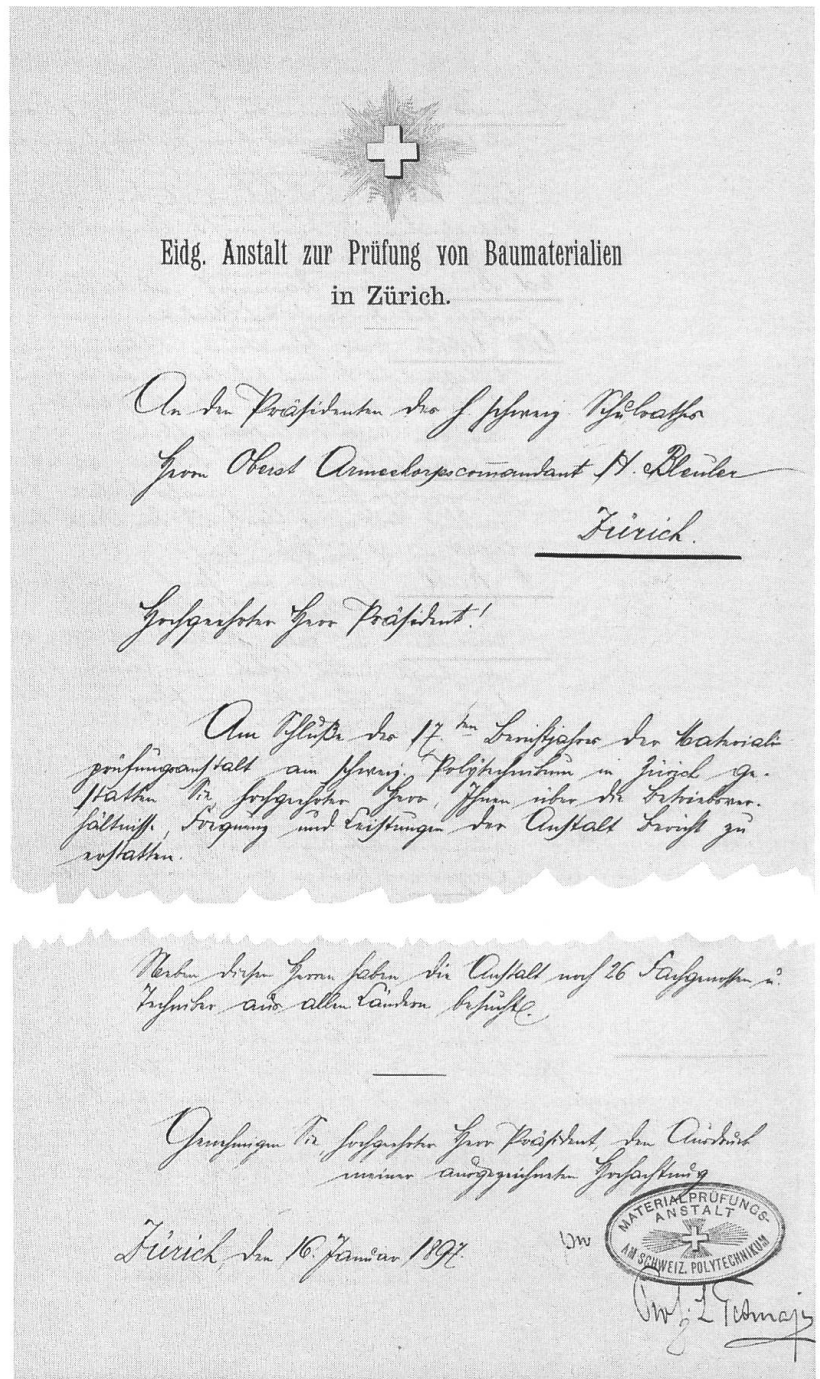 Eidg. Anstalt zur Prüfung von Baumaterialien
in Zürich.
An den Präsidenten des h. schweiz. Schulrathes
Herrn Oberst Armeekorpscom̅andant H. Bleuler
Zürich.
Hochgeehrter Herr Präsident!
Am Schluße des 17.ten Berichtjahres der Material-
prüfungsanstalt am schweiz. Polytechnikum in Zürich ge-
statten Sie, hochgeehrter Herr, Ihnen über die Betriebsver-
hältnisse, und Leistungen der Anstalt Bericht zu
erstatten.
Neben diesen Herren haben die Anstalt noch 26 Fachgenossen u.
Techniker aus allen Ländern besucht.
Genehmigen Sie, hochgeehrter Herr Präsident, den Ausdruck
meiner ausgezeichneten Hochachtung
MATERIALPRÜFUNGS-
ANSTALT
AM SCHWEIZ. POLYTECHNIKUM
Zürich, den 16. Januar 1897.
Prof. L. Tetmajer